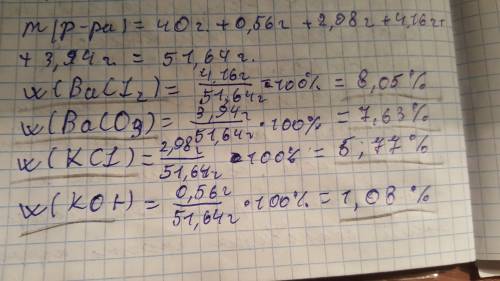 m(р-ра) = 40г. + 0,56г + 2,98г + 4,16г +
+ 3,94г = 51,64г.
w(BaCl₂) = 4,16г / 51,64г · 100% = 8,05%
w(BaCO₃) = 3,94г / 51,64г · 100% = 7,63%
w(KCl) = 2,98г / 51,64г · 100% = 5,77%
w(KOH) = 0,56г / 51,64г · 100% = 1,08%